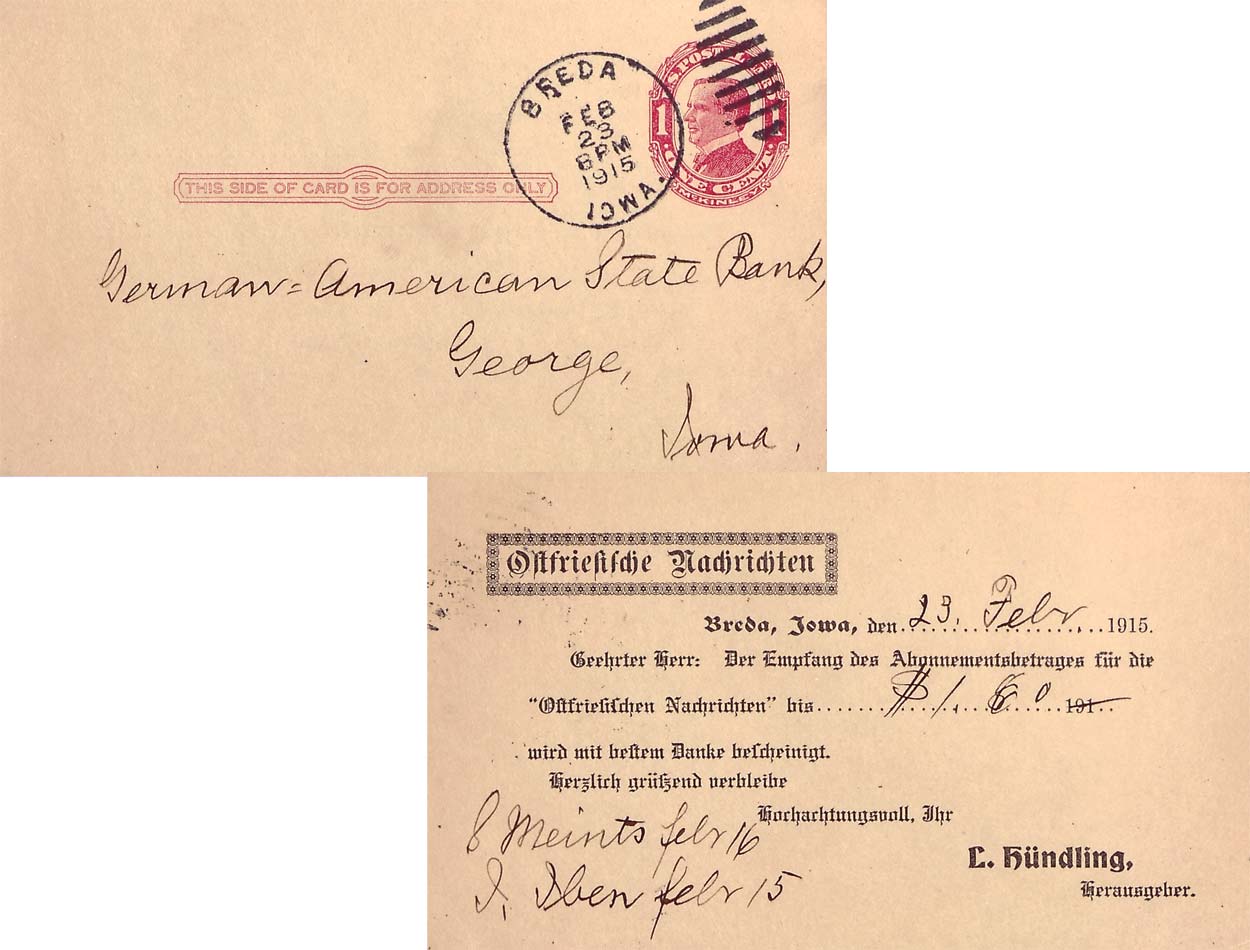 BREDA
FEB
23
8PM
1915
IOWA.
U.S. POSTAGE
1 1
ONE CENT
McKINLEY
THIS SIDE OF CARD IS FOR ADDRESS ONLY
German=American State Bank,
George,
Iowa.
Ostfriesische Nachrichten
Breda, Iowa, den 23. Febr. 1915.
Geehrter Herr: Der Empfang des Abonnementsbetrages für die
"Ostfriesischen Nachrichten" bis $1.60 191
wird mit bestem Danke bescheinigt.
Herzlich grüßend verbleibe
Hochachtungsvoll, Ihr
Meints febr 16
L. Hündling,
I. Iben febr 15
Herausgeber.